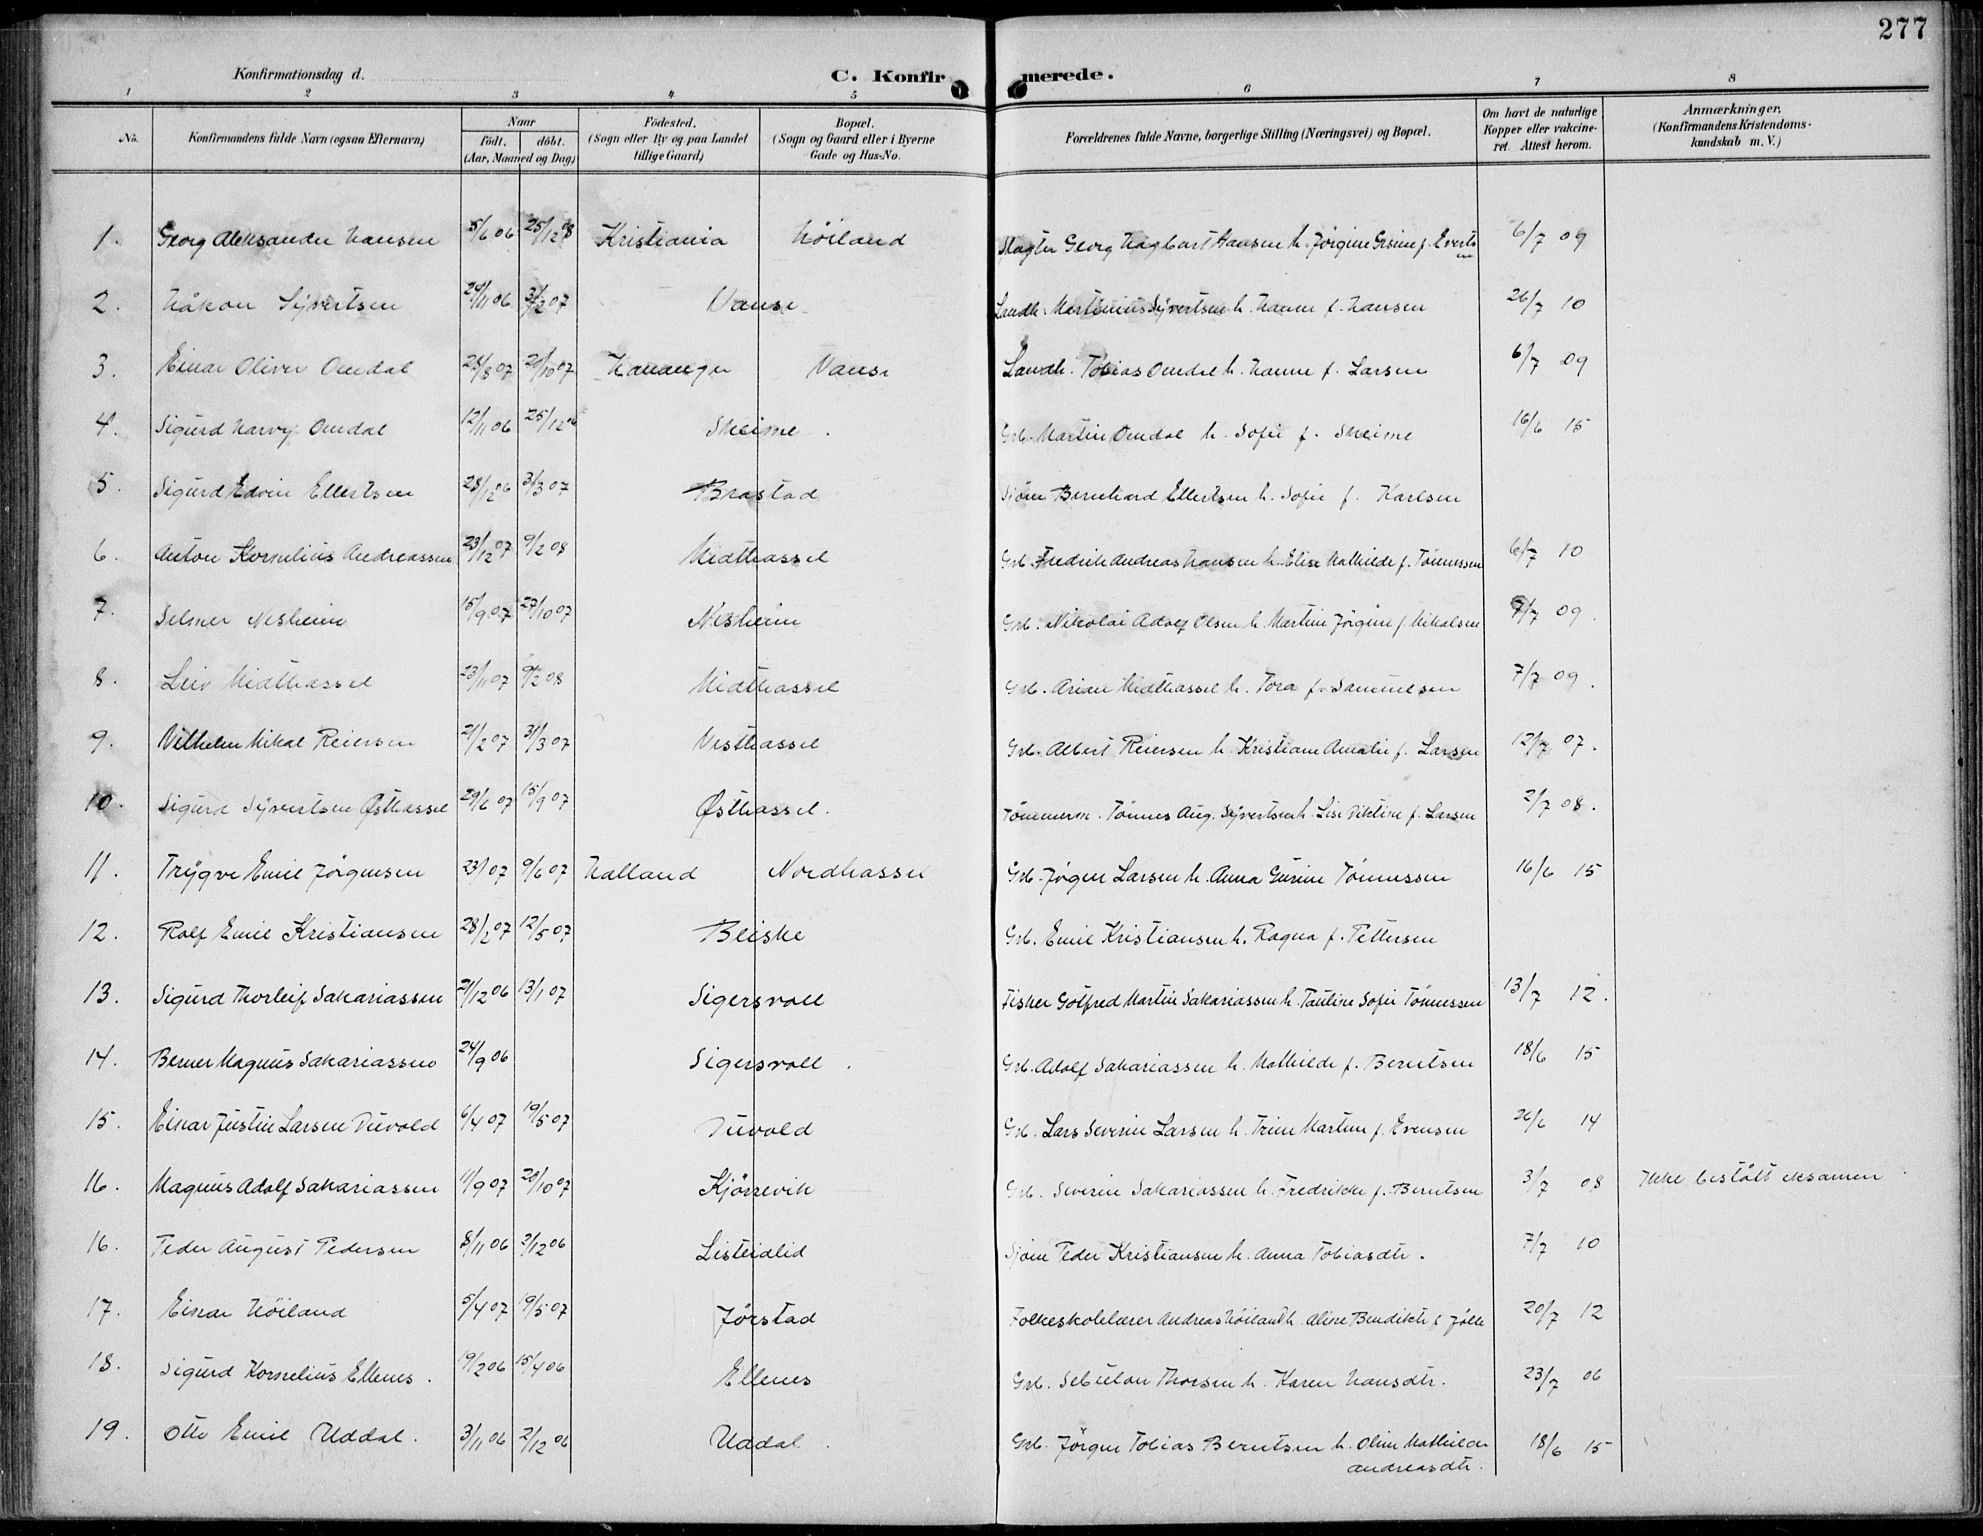 277
Konfirmationsdag d.
C. Konfirmerede.
1 2 3 4 5 6 7 8
No.
Konfirmandens fulde Navn (ogsaa Efternavn)
Naar
født. døbt.
(Aar, Maaned og Dag)
Fødested.
(Sogn eller By og paa Landet
tillige Gaard)
Bopæl.
(Sogn og Gaard eller i Byerne
Gade og Hus-No.
Forældrenes fulde Navne, borgerlige Stilling (Næringsvei) og Bopæl.
Om havt de naturlige
Kopper eller vakcine-
ret. Attest herom.
Anmærkninger.
(Konfirmandens Kristendoms-
kundskab m. V.)
1. Georg Aleksander Hansen 5/6 06 25/12 08 Kristiania Höiland Slagter Georg Hagbart Hansen h. Jørgine Gesine f. Evertsen 6/7 09
2. Håkon Sÿvertsen 24/11 06 3/2 07 Vanse Landh. Martinius Sÿvertsen h. Hanne f. Hansen 26/7 10
3. Einar Oliver Omdal 28/8 07 20/10 07 Hananger Vanse Landh. Tobias Omdal h. Hanne f. Larsen 6/7 09
4. Sigurd Harry Omdal 12/11 06 25/12 06 Skeime. Grb. Martin Omdal h. Sofie f. Skeime 16/6 15
5. Sigurd Edvin Ellertsen 28/12 06 3/3 07 Brastad Sjöm Bernhard Ellertsen h. Sofie f. Karlsen
6. Anton Kornelius Andreassen 23/12 07 9/2 08 Midthassel Grb. Fredrik Andreas Hansen h. Elise Mathilde f. Tönnessen 6/7 10
7. Selmer Nesheim 15/9 07 27/10 07 Nesheim Grb. Nikolai Adolf Olsen h. Martine Jørgine f. Mikalsen 7/7 09
8. Leiv Midthassel 23/11 07 9/2 08 Midthassel Grb. Arian Midthassel h. Tora f. Samuelsen 7/7 09.
9. Vilhelm Mikal Reiersen 21/2 07 31/3 07 Vesthassel Grb. Albert Reiersen h. Kristiane Amalie f. Larsen 12/7 07.
10. Sigurd Sÿvertsen Østhassel 29/6 07 15/9 07 Østhassel. Tömmerm. Tönnes Aug. Sÿvertsen h. Lise Diktine f. Larsen 2/7 08.
11. Trÿgve Emil Jörgensen 23/ 07 9/6 07 Halland Nordhassel Grb. Jörgen Larsen h. Anna Gurine Tönnessen 16/6 15
12. Rolf Emil Kristiansen 28/2 07 12/5 07 Beiske Grb. Emil Kristiansen h. Ragna f. Pettersen
13. Sigurd Thorleif Sakariassen 21/12 06 13/1 07 Sigersvoll Fisker Gotfred Martin Sakariassen h. Pauline Sofie Tönnessen 13/7 12.
14. Berner Magnus Sakariassen 24/9 06 Sigersvoll. Grb. Adolf Sakariassen h. Mathilde f. Berntsen 18/6 15
15. Einar Justin Larsen Duvold 6/4 07 19/5 07 Duvold Grb. Lars Severin Larsen h. Trine Martine f. Evensen 26/6 14
16. Magnus Adolf Sakariassen 11/9 07 20/10 07 Kjörrevik Grb. Severin Sakariassen h. Fredrikke f. Berntsen 3/7 08 Ikke bestått eksamen
16. Peder August Pedersen 8/11 06 2/12 06 Listeidlid Sjöm Peder Kristiansen h. Anna Tobiasdtr. 7/7 10
17. Einar Höiland 5/4 07 19/5 07 Jörstad Folkeskolelærer Andreas Höiland h. Aline Bendikte f. Jölle 20/7 12
18. Sigurd Kornelius Ellenes. 19/2 06 15/4 06 Ellenes Grb. Sebulon Thorsen h. Karen Hansdtr. 23/7 06
19. Otto Emil Uddal. 3/11 06 2/12 06 Uddal. Grb. Jörgen Tobias Berntsen h. Oline Mathilde
Andreasdtr. 18/6 15